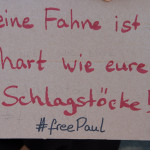 eine Fahne ist
hart wie eure
Schlagstöcke!
#freePaul